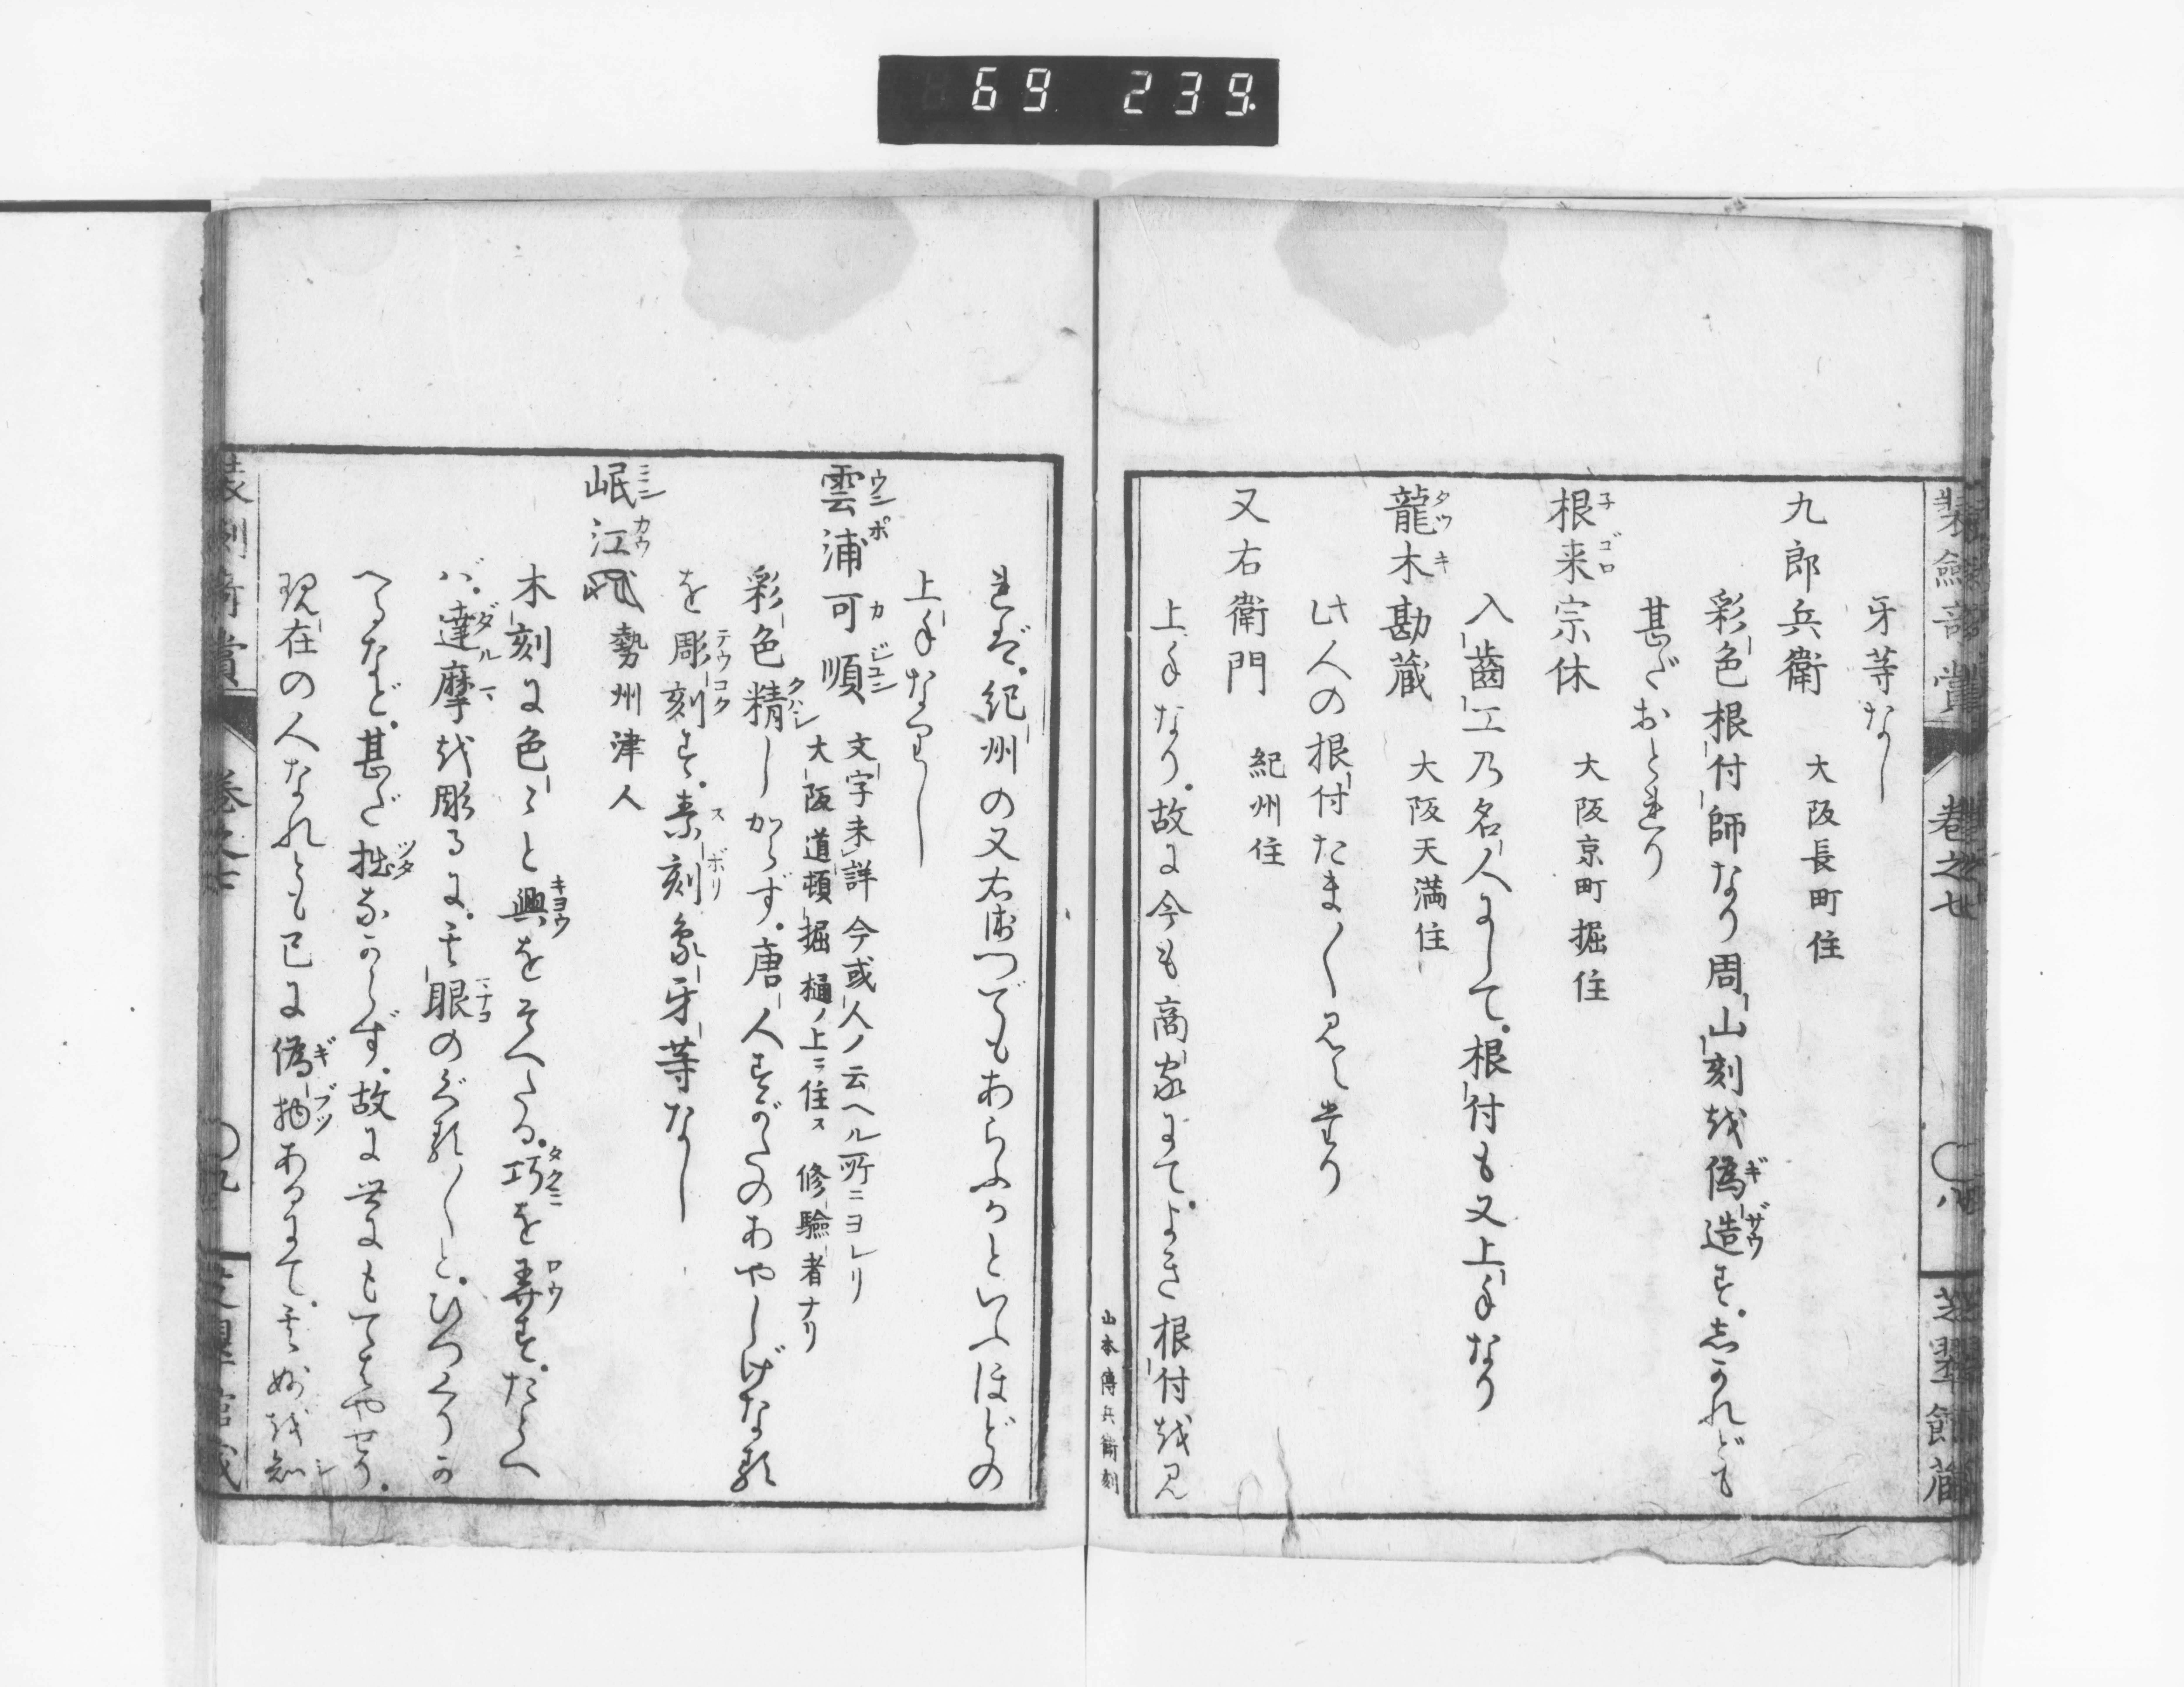 69 239.
装劔奇賞
卷之七
八
芝翠館藏
牙等なし
九郎兵衛 大阪長町住
彩色根付師なり周山刻を偽造す。しかれども
甚だおとれり
根来宗休 大阪京町堀住
入齒工乃名人にして。根付も又上手なり
龍木勘蔵 大阪天満住
此人の根付たま〱見え
又右衛門 紀州住
上手なり。故に今も商家にて。よき根付を見
山本傳兵衛刻
れば。紀州の又右衛つでもあらふかといふほどの
上手なりし
雲浦可順 文字未詳今或人ノ云ヘル所ニヨレリ
大阪道頓堀樋ノ上ニ住ス 修驗者ナリ
彩色精しからず。唐人すがたのあやしげなる
を彫刻す。素刻象牙等なし
岷江 勢州津人
木刻に色〻と興をそへたる。巧を弄す。たとへ
バ。達摩を彫るに。其眼のくる〱と。ひつくりか
へるなど。甚だ拙なからず。故に世にもてはやせり。
現在の人なれとも已に偽物あるにて。其妙を知
装劔奇賞
卷之七
九
芝翠館藏